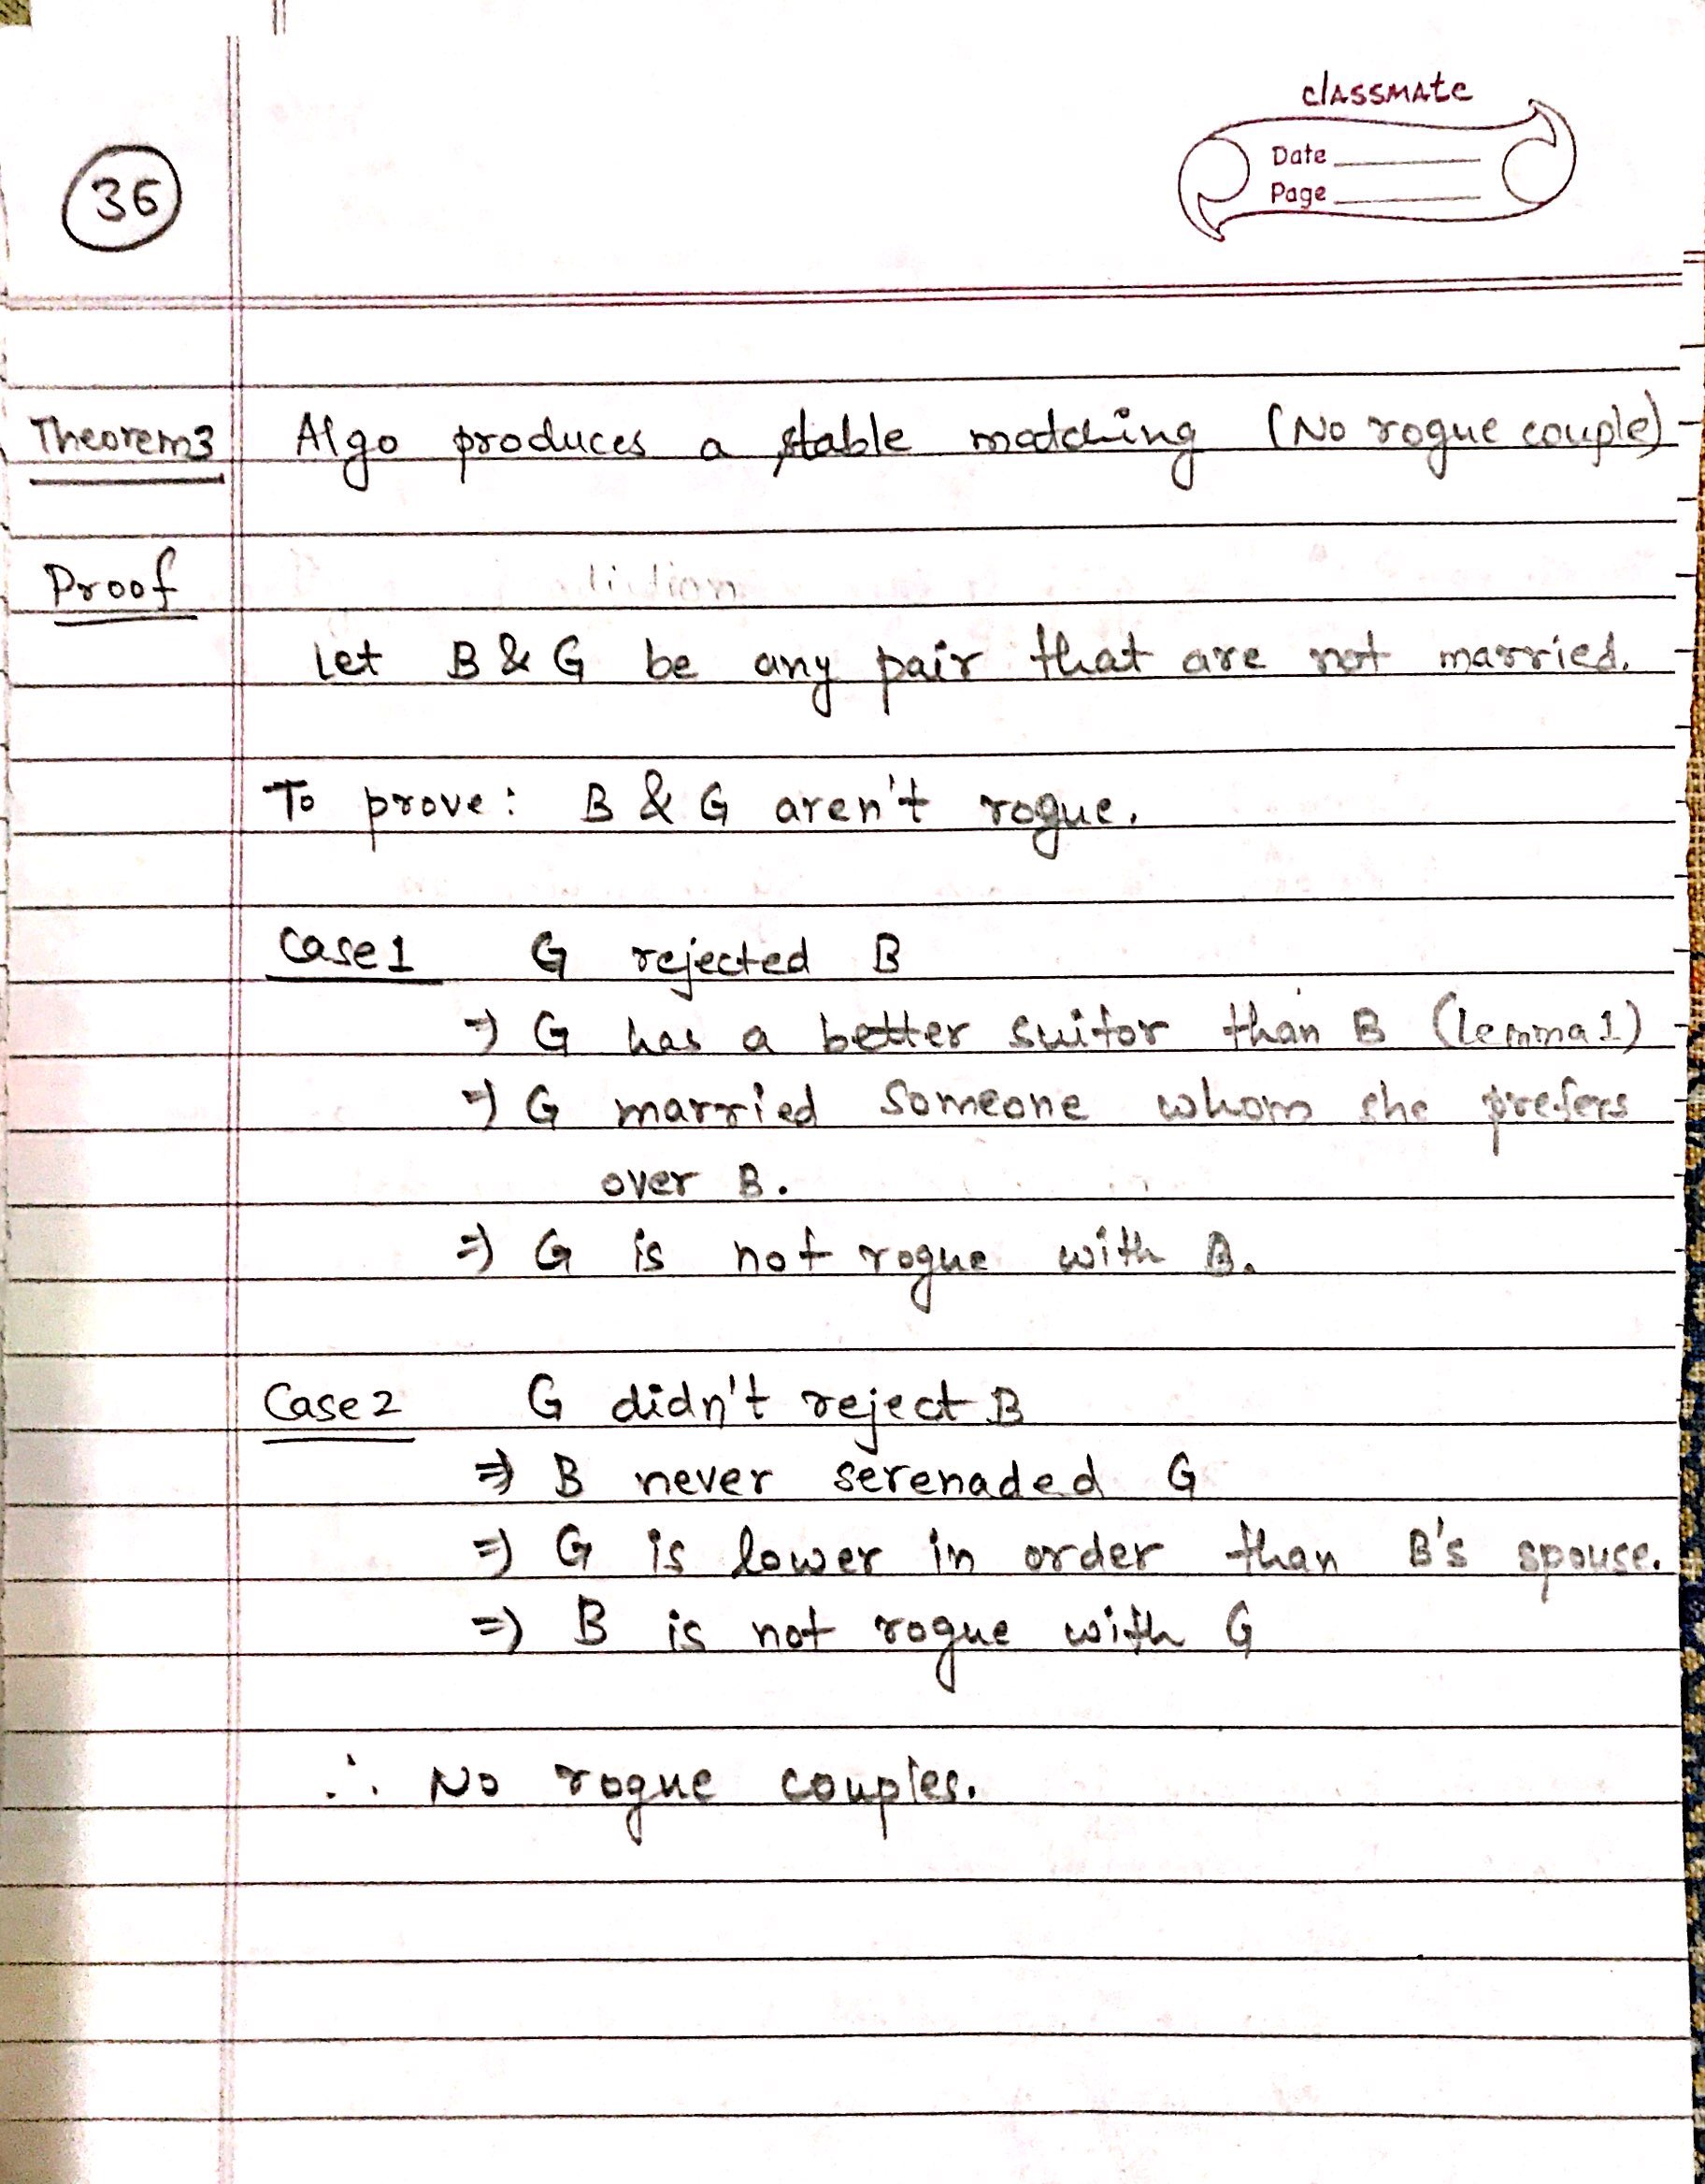 classmate
Date
Page
36
Theorem3 Algo produces a stable matching (No rogue couple)
Proof
Let B & G be any pair that are not married.
To prove: B & G aren't rogue.
Case 1 G rejected B
⇒ G has a better suitor than B (lemma 1)
⇒ G married someone whom she prefers
over B.
⇒ G is not rogue with B.
Case 2 G didn't reject B
⇒ B never serenaded G
⇒ G is lower in order than B's spouse.
⇒ B is not rogue with G
∴ No rogue couples.